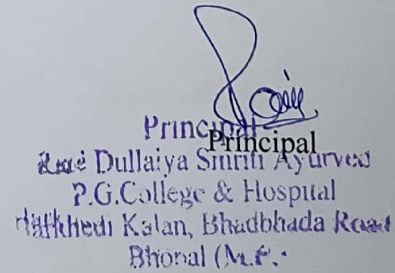 Principal
Principal
Rani Dullaiya Smriti Ayurved
P.G.College & Hospital
Kalan, Bhadbhada Road
Bhopal (M.P.